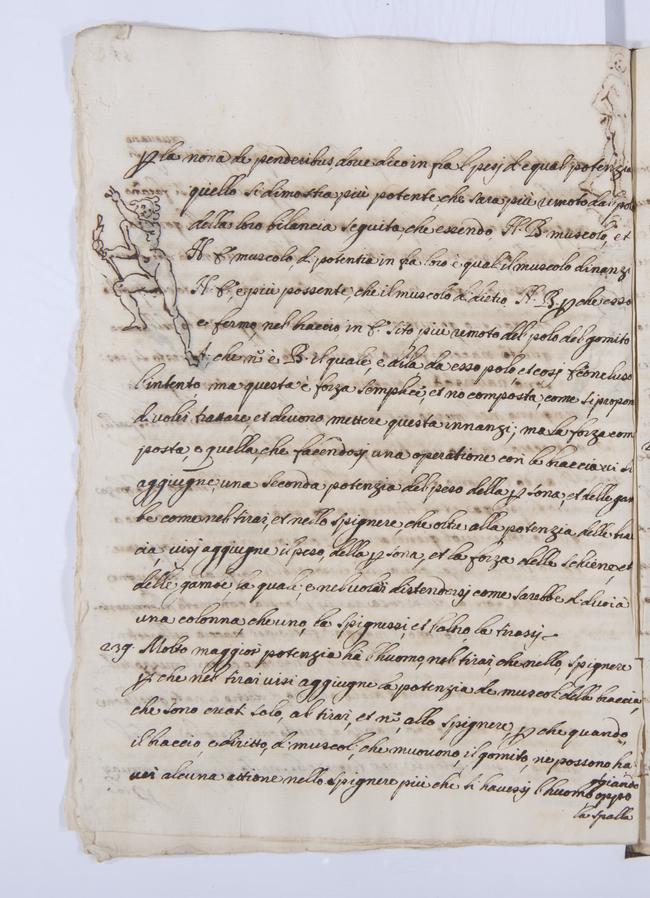 P la nona de ponderibus, dove dico in fra l pesi d equal potenzia
quello si dimostra più potente che sara più remoto dal polo
della loro bilancia seguita, che essendo A. B. muscolo, et
A. f. muscolo, di potentia in fra loro è qual' il muscolo dinanzi
A. f. è più possente, che il muscolo di dietro A. B. p che esso
è fermo nel braccio in f. sito più remoto del polo del gomito
che nō è B. il quale, è di la da esso polo, et cosi è concluso
l'intento, ma questa è forza semplice et nō composta, come si propon
di voler trattare, et devono mettere questa innanzi; ma la forza com
posta, è quella, che facendosi una operatione con la braccia vi si
aggiugne, una seconda potenzia del peso della p sona, et delle gam
be come nel tirar, et nello spignere, che oltre alla potenzia delle bra
cia, visi aggiugne il peso, della p sona, et la forza delle schiene, et
delle gambe, la quale, è nel voler distendersi come sarebbe di duoi a
una colonna, che uno, la spignessi, et l'altro la tirassi –
239. Molto maggior potenzia hà l'huomo nel tirar, che nello, spignere
p che nel tirar visi aggiugne la potenzia de muscol della braccia,
che sono creat solo, al tirar, et nō, allo spignere, p che quando
il braccio, è diritto, d muscol, che muovono, il gomito, ne possono ha
ver alcuna attione nello, spignere più che si havessi l'huomo appo
ggiando
la spalla